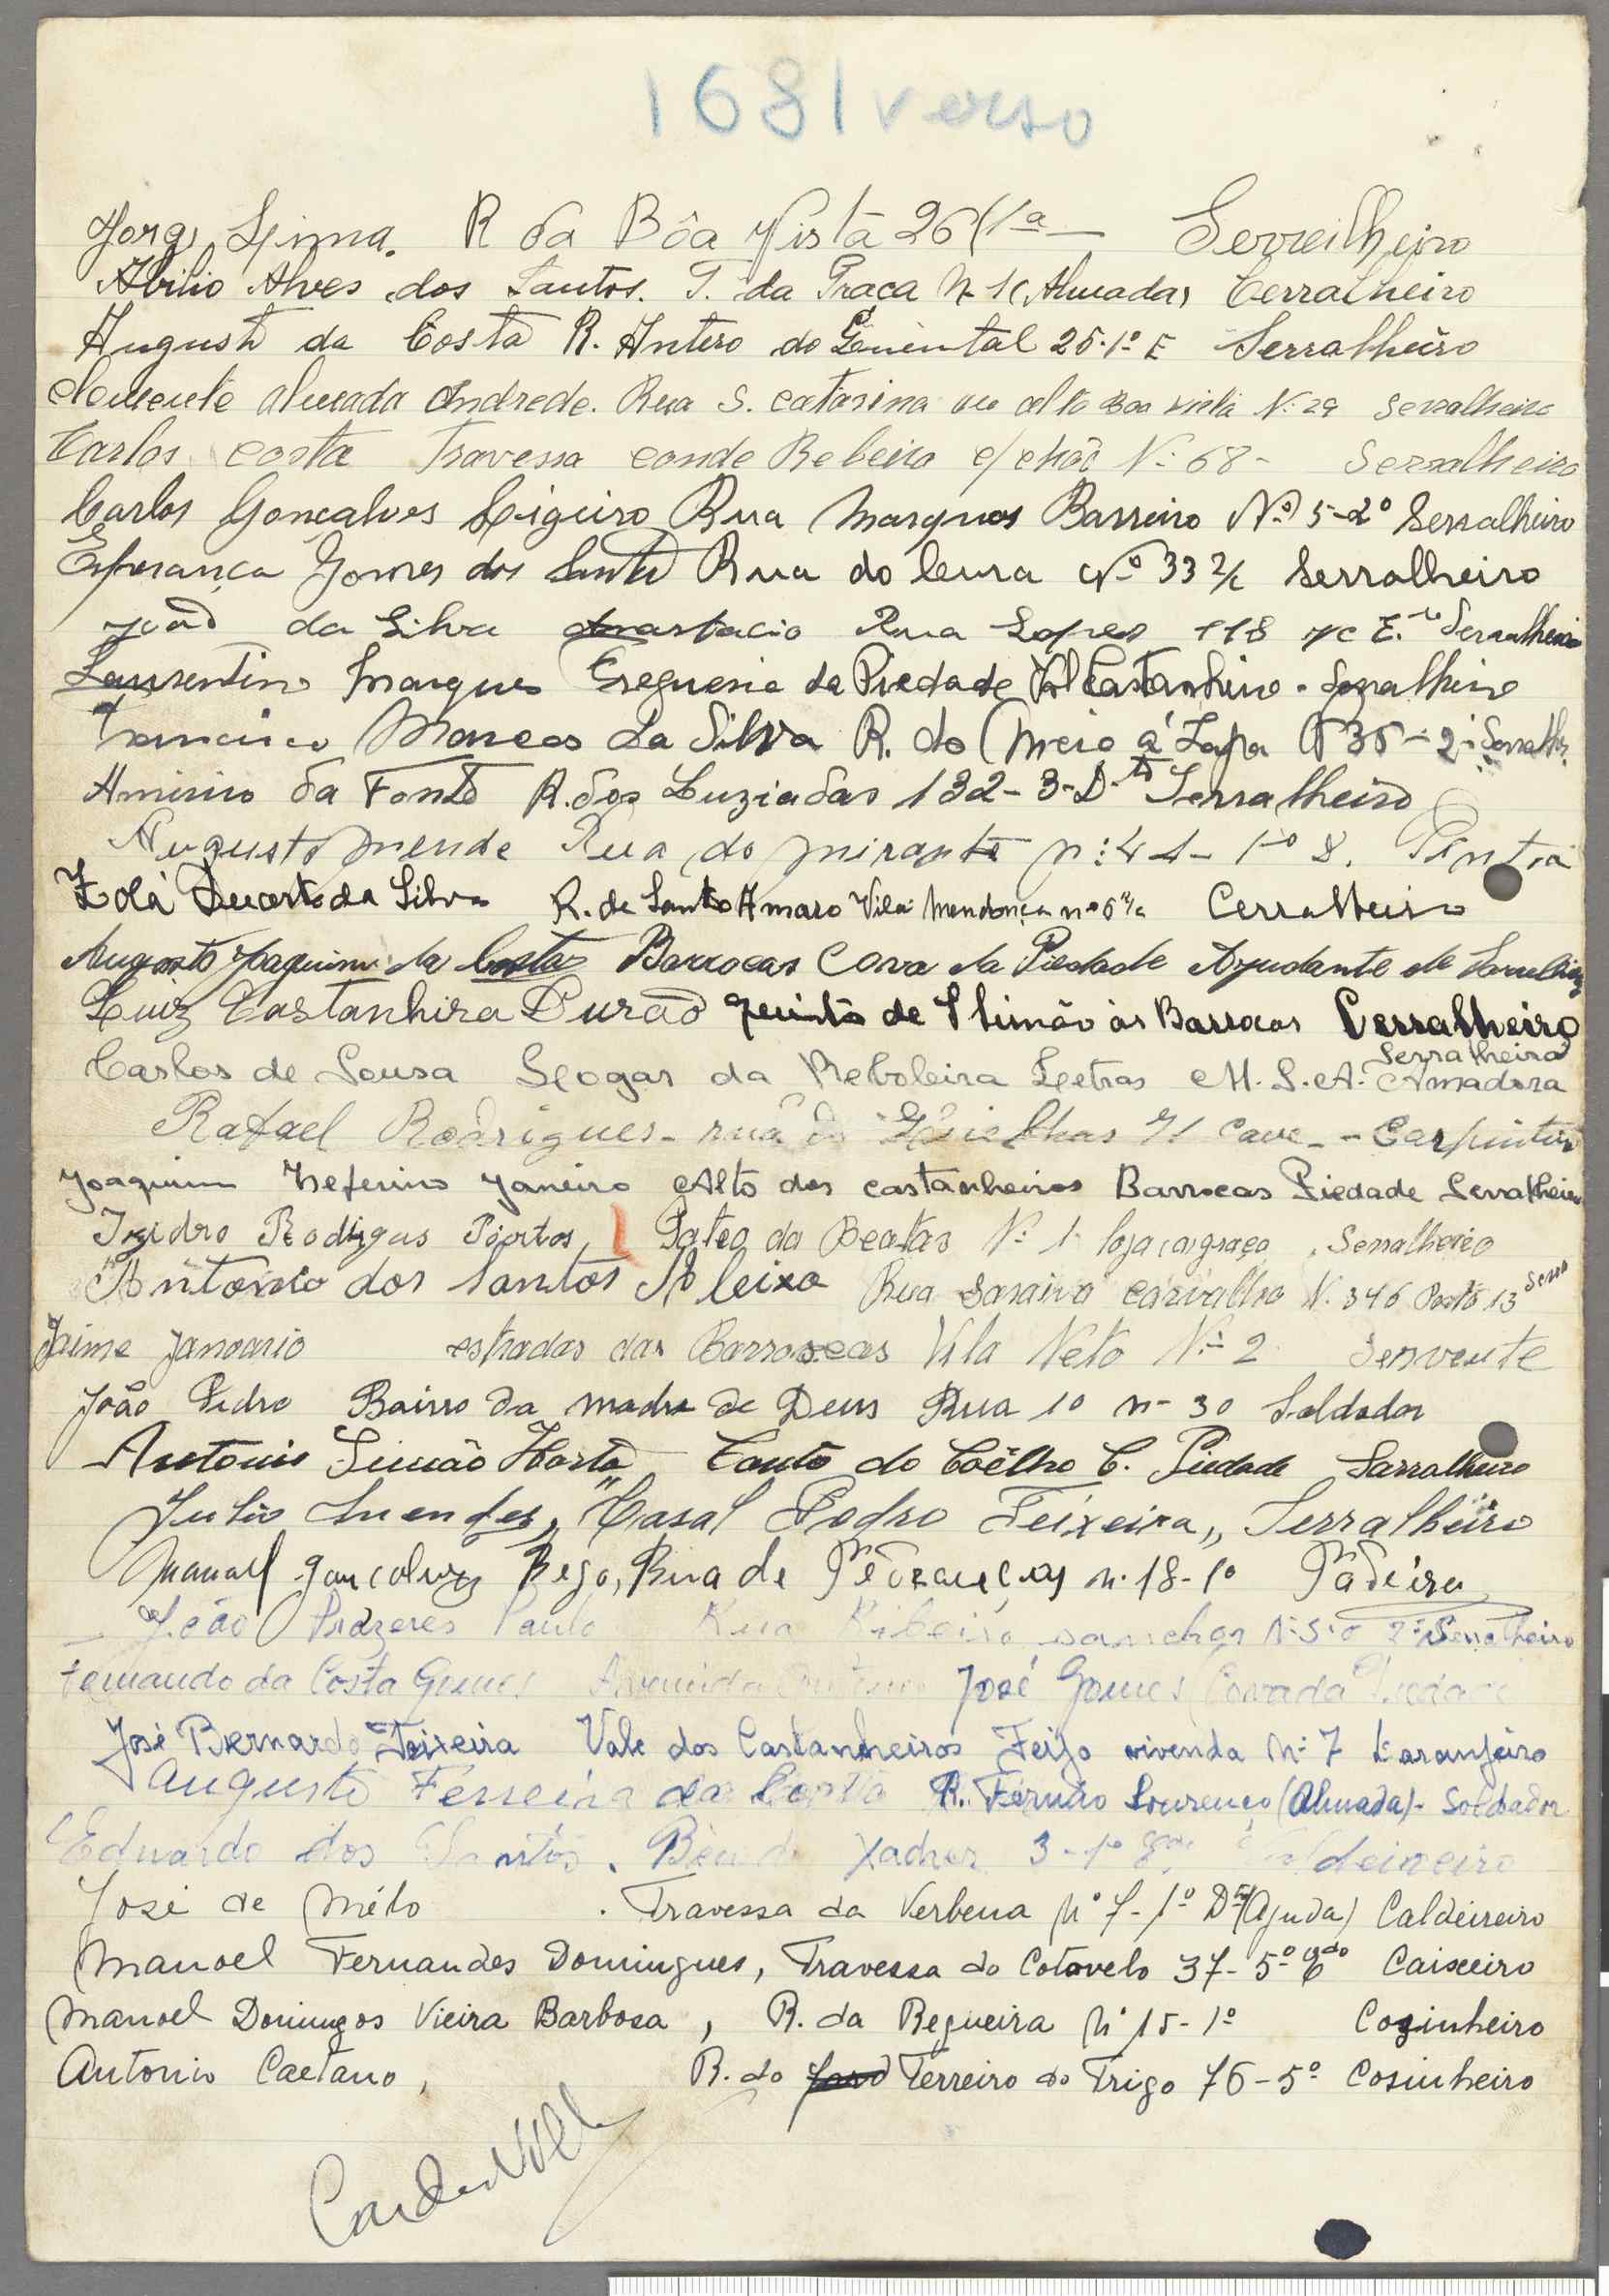 1681 verso
Jorge Lima. R da Bôa Vista 26 1ª Serreilheiro
Abilio Alves dos Santos. T. da Praca Nº 1 (Almada) Cerralheiro
Augusto da Costa R. Antero do Quental 25-1º E Serralheiro
Clemente almada Andrede. Rua S. Catarina ou alto Boa vista Nº 29 Serralheiro
Carlos Costa Travessa Conde Rebeiro Nº 68- Serralheiro
Carlos Gonçalves Ligeiro Rua Marques Barreiro Nº 5-2º Serralheiro
Esperança Gomes dos Santos Rua do Cura Nº 33 Serralheiro
João da Silva Anastacio Rua Lopes 118 r/c E. Serralheiro
Laurentino Marques da Piedade Serralheiro
Francisco da Silva R. do Meio á Lapa 35-2º
da Fonte R. dos Luziadas 132-3-D.to Serralheiro
Augusto mende Rua do mirante nº 44-1º
Zolá Ducarte da Silva R. de Santo Amaro Vila Mendonça nº 6 Cerralheiro
Augusto Joaquim da Costa Barrocas Cova da Piedade Ajudante de
Luiz Castanhira Durão Quinta de às Barrocas Cerralheiro
Carlos de Sousa da Reboleira Letras M.S.A. Serralheiro Amadora
Rafael Rodrigues - rua 71 Cave -- Carpinteiro
Joaquim Zeferino Janeiro Alto dos castanheiros Barrocas Piedade Serralheiro
Izidro Rodrigus Portos, Pateo da Beatas Nº 1 loja (a graça Serralheiro
Antonio dos Santos Aleixo Rua Saraiva Carvalho N. 346 Porta 13
Jaime Janoario estradas das Barrocas Vila Neto Nº 2 Servente
João Pedro Bairro da madre de Deus Rua 10 nº 30 Soldador
Antonio Simão Horta Canto do Coêlho C. Piedade Sarralheiro
Julio Mendes, "Casal Pedro Teixeira,, Serralheiro
Manoel Rego, Rua de Pedrouços n. 18-1º Padeiro
João Prazeres Paulo Rua Ribeiro sanches Serralheiro
Fernando da Costa Gomes Avenida José Gomes Cova da Piedade
José Bernardo Teixeira Vale dos Castanheiros Feijo vivenda Nº 7 Laranjeiro
Augusto Ferreira da Costa R. Fernão Lourenço (Almada) - Soldador
Eduardo dos Santos. Xadrez 3-1º Caldeireiro
José de Mélo . Travessa da Verbena Nº 7-1º Dtº (Ajuda) Caldeireiro
Manoel Fernandes Domingues, Travessa do Cotovelo 37-5º Caixeiro
Manoel Domingos Vieira Barbosa , R. da Regueira Nº 15-1º Cozinheiro
Antonio Caetano, R. do Terreiro do Trigo 76-5º Cosinheiro